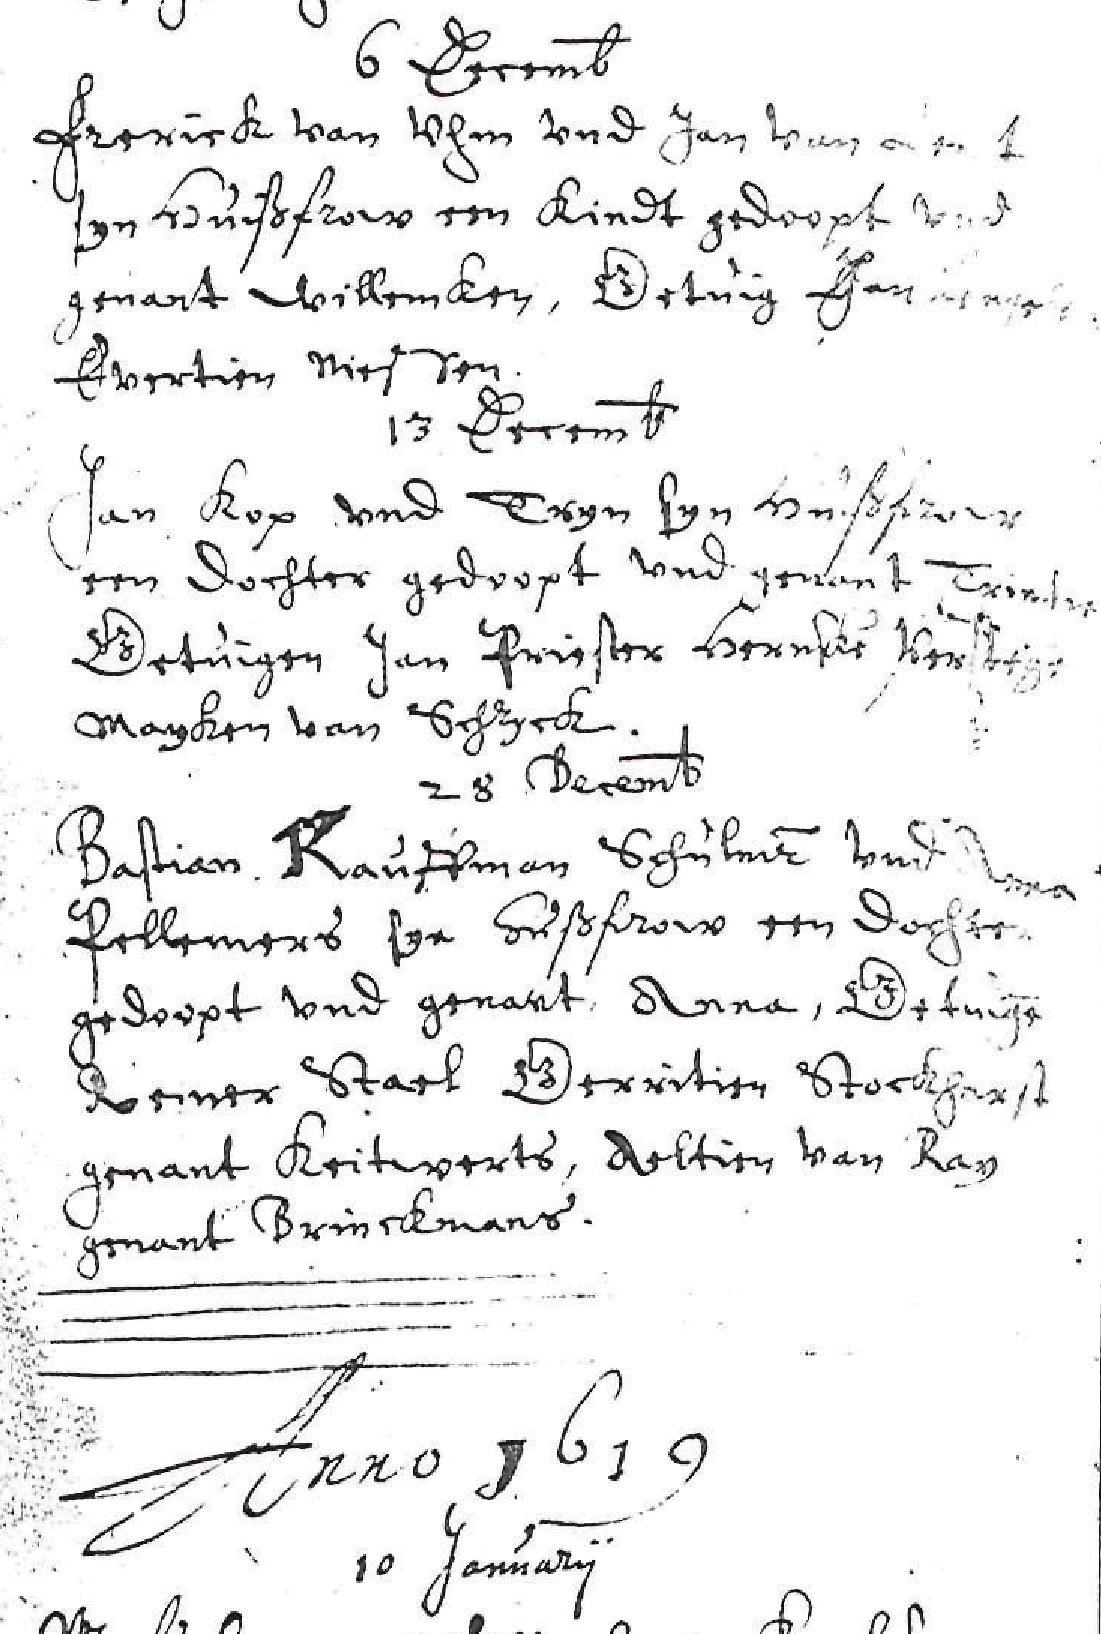 6 Decemb
Frerick van Vhm vnd Jan van
syn Huißfrow een Kindt gedoopt vnd
genant Willemken, Getuig Jan
Evertien Niessen.
13 Decemb
Jan Kop vnd Tryn syn Huißfrow
een Dochter gedoopt vnd genant Trintie
Getuigen Jan Priester
Mayken van Schryck.
28 Decemb
Bastian Kauffman vnd Anna
Pellemers syn Hußfrow een Dochter
gedoopt vnd genant Anna, Getuige
Reiner Stael Gerritien Stockharst
genant Keitwerts, Aeltien van Ray
genant Brinckmans.
Anno 1619
10 Januarij